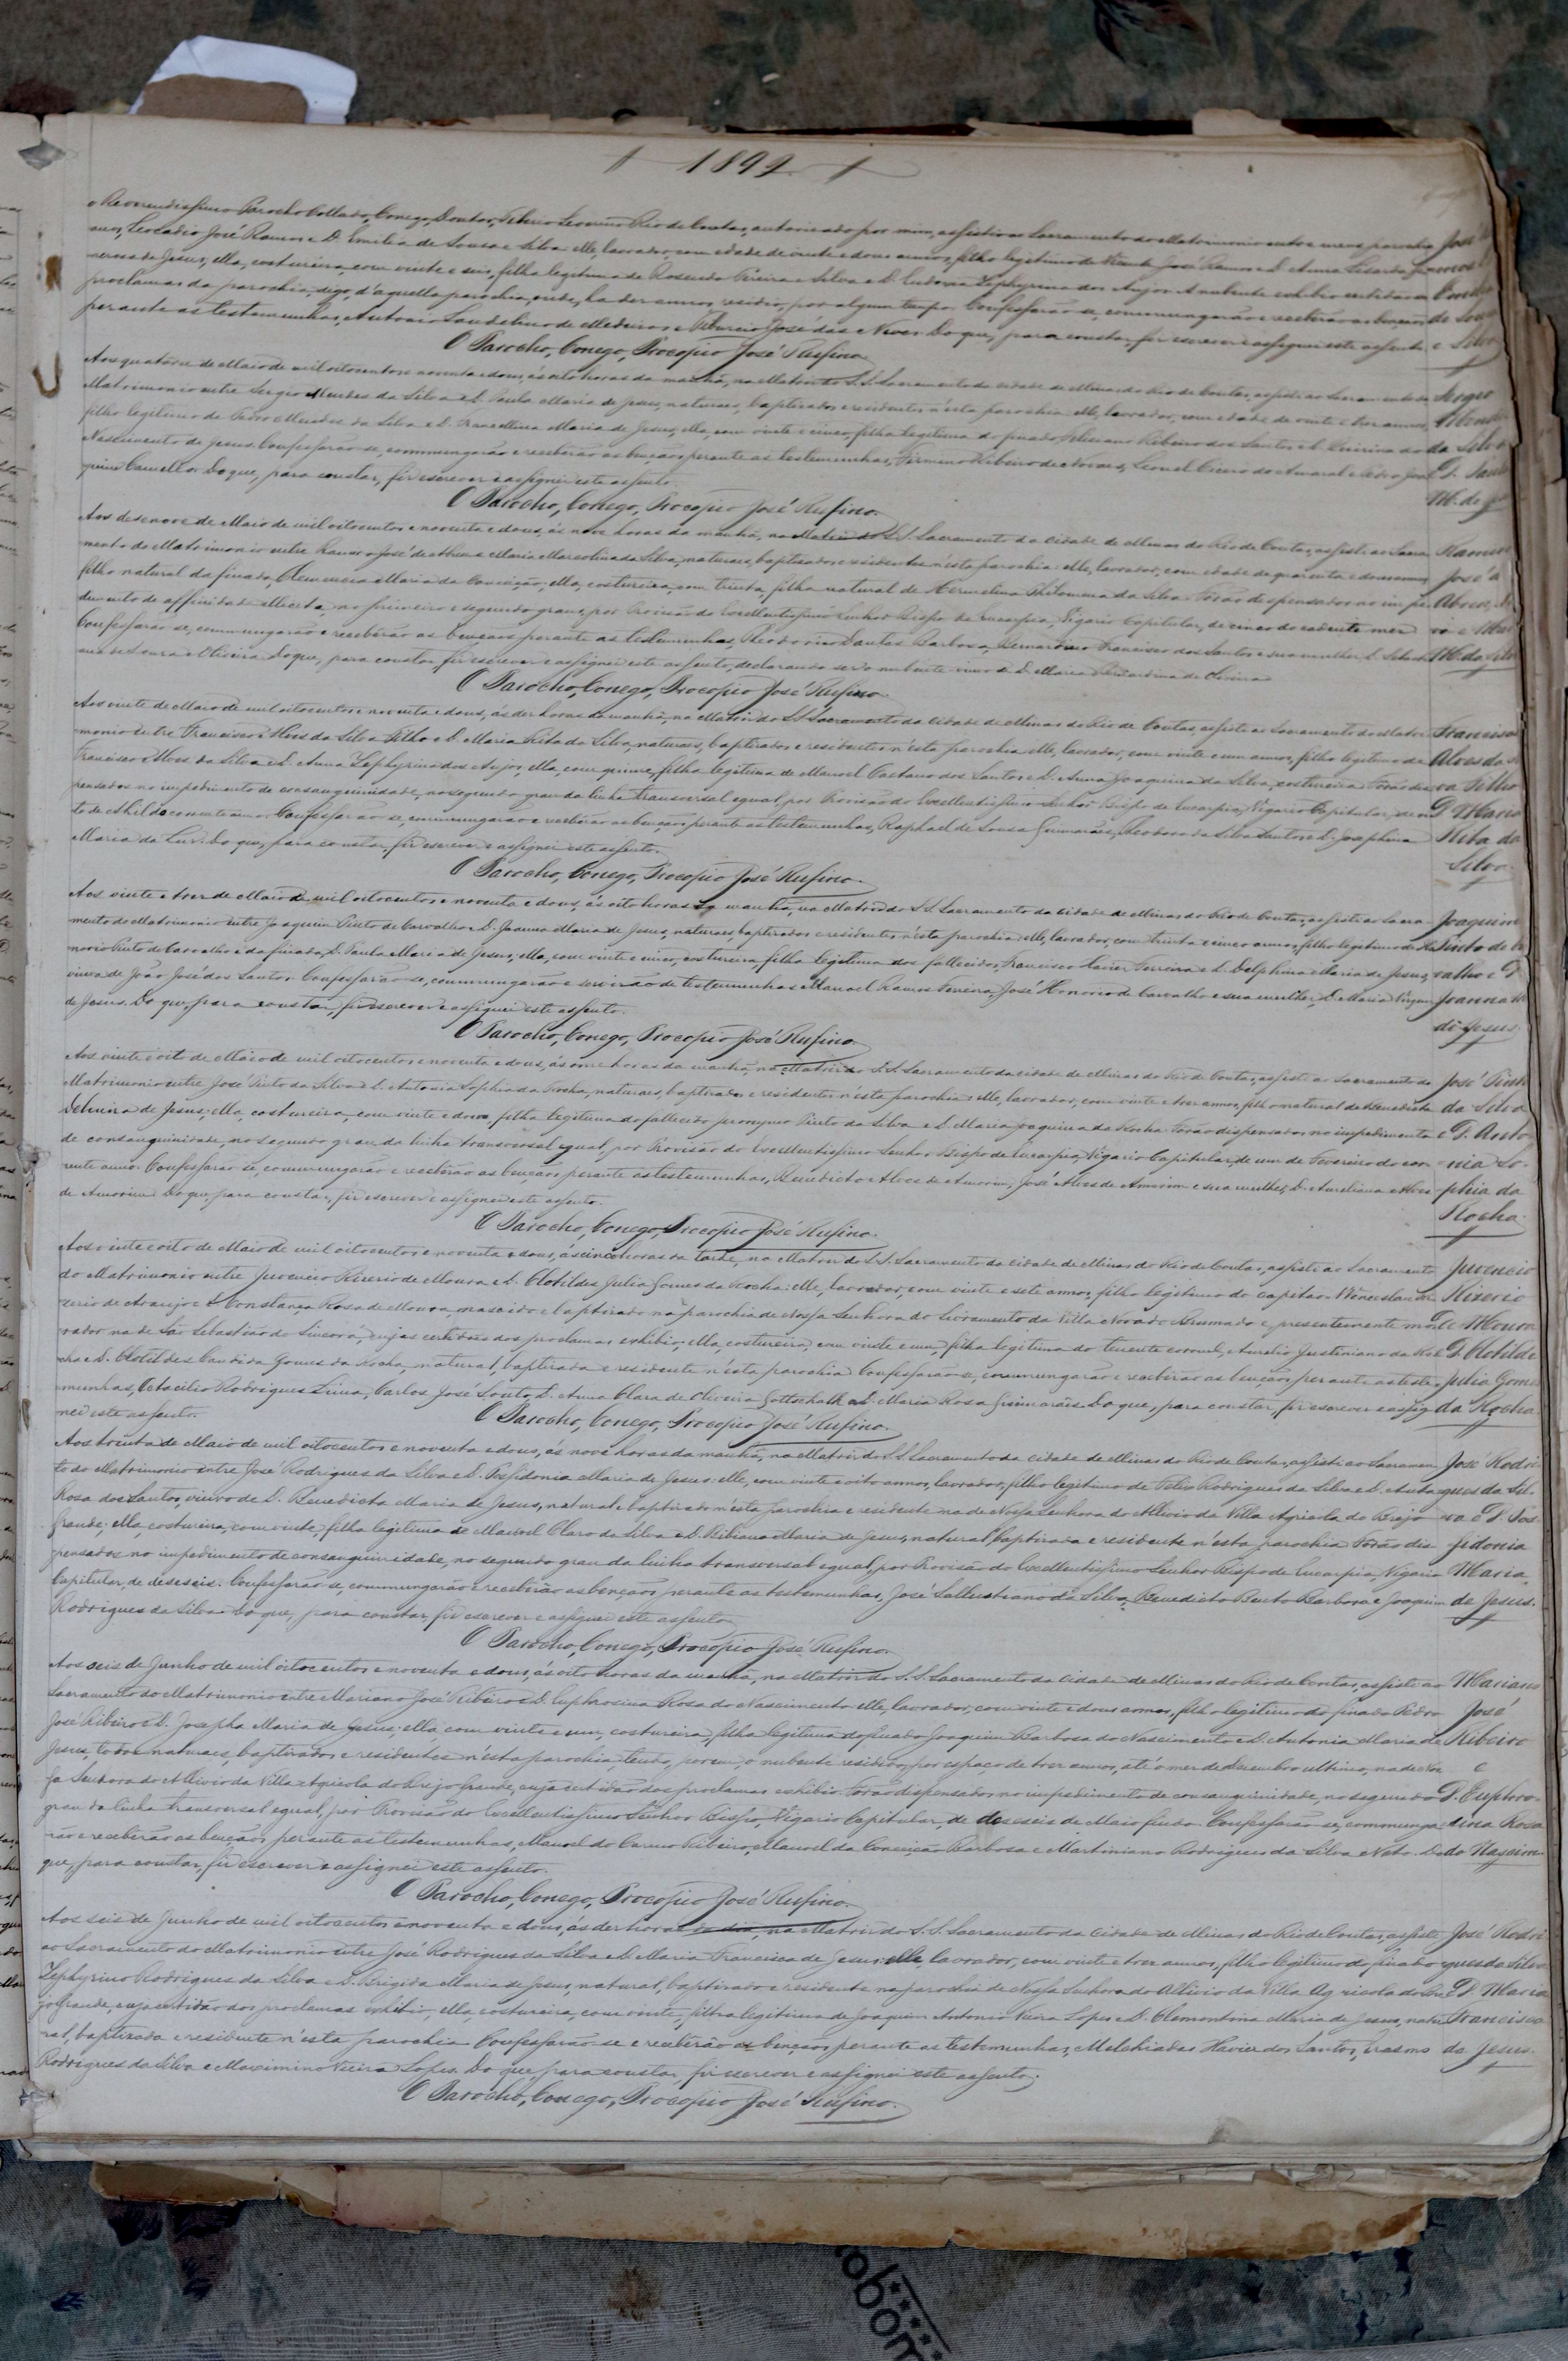 1892
o Reverendissimo Parocho Collado, Conego, Doutor, Tiberio Severino Rio de Contas, autorisado por mim, assistio ao Sacramento do Matrimonio entre meus parochia José
nos, Leocadio José Ramos e D. Emilia de Sousa e Silva: elle, lavrador, com edade de vinte e dous annos, filho legitimo de Vicente José Ramos e D. Anna
de Jesus; ella, costureira, com vinte e seis, filha legitima de Rosendo Pereira e Silva e D. Eudoxia Zephyrina dos Anjos. A nubente exhibio certidão
proclamas da parochia, digo, d'aquella parochia, onde, ha dez annos, residio, por algum tempo. Confessarão-se, commungarão e receberão as bençãos de Sou
perante as testemunhas, Antonio Laudelino de Medeiros e Tiburcio José das Neves. Do que, para constar, fiz escrever e assignei este assento. e Silva
O Parocho, Conego, Procopio José Rufino.
Aos quatorze de Maio de mil oitocentos e noventa e dous, ás oito horas da manhã, na Matriz do S.S. Sacramento da cidade de Minas do Rio de Contas, assisti ao Sacramento do Sergio
Matrimonio entre Sergio Mendes da Silva e D. Paula Maria de Jesus, naturaes, baptizados e residentes n'esta parochia: elle, lavrador, com edade de vinte e tres annos, Mende
filho legitimo de Pedro Mendes da Silva e D. Francellina Maria de Jesus; ella, com vinte e cinco, filha legitima do finado Feliciano Ribeiro dos Santos e D. Quirina do da Silva
Nascimento de Jesus. Confessarão-se, commungarão e receberão as bençãos perante as testemunhas, Firmino Ribeiro de Novaes, Leonel Cicero do Amaral e Pedro Joa D. Paula
quim Camello. Do que, para constar, fiz escrever e assignei este assento. M. de Je
O Parocho, Conego, Procopio José Rufino.
Aos desenove de Maio de mil oitocentos e noventa e dous, ás nove horas da manhã, na Matriz do S.S. Sacramento da cidade de Minas do Rio de Contas, assisti ao Sacra
mento do Matrimonio entre José de Abreu e Maria Marcolina da Silva, naturaes, baptisados e residentes n'esta parochia: elle, lavrador, com edade de quarenta e dous annos, José d
filho natural da finada Clemencia Maria da Conceição; ella, costureira, com trinta, filha natural de Hermelina Philomena da Silva. Forão dispensados no impe Abreu
dimento de affinidade illicita, no primeiro e segundo graus, por Provisão do Excellentissimo Senhor Bispo de Eucarpia, Vigario Capitular, de cinco do cadente mez
Confessarão-se, commungarão e receberão as bençãos perante as testemunhas, Theodorico Dantas Barbosa, Bernardino Francisco dos Santos e sua mulher, D. M. da Silva
de Moura e Oliveira. Do que, para constar, fiz escrever e assignei este assento, declarando ser o nubente viuvo de D. Maria Bernardina de Oliveira
O Parocho, Conego, Procopio José Rufino.
Aos vinte de Maio de mil oitocentos e noventa e dous, ás dez horas da manhã, na Matriz do S.S. Sacramento da cidade de Minas do Rio de Contas, assisti ao Sacramento do Matri Francisco
monio entre Francisco Alves da Silva Filho e D. Maria Rita da Silva, naturaes, baptizados e residentes n'esta parochia: elle, lavrador, com vinte e um annos, filho legitimo de Alves da Sil
Francisco Alves da Silva e D. Anna Zephyrina dos Anjos; ella, com quinze, filha legitima de Manoel Caetano dos Santos e D. Anna Joaquina da Silva, costureira. Forão dis va Filho
pensados no impedimento de consanguinidade, no segundo grau da linha transversal egual, por Provisão do Excellentissimo Senhor Bispo de Eucarpia, Vigario Capitular, de D. Maria
de Abril do corrente anno. Confessarão-se, commungarão e receberão as bençãos perante as testemunhas, Raphael de Sousa Guimarães, Theodoro da Silva Santos e D. Josephina Rita da
Maria da Luz. Do que, para constar, fiz escrever e assignei este assento. Silva.
O Parocho, Conego, Procopio José Rufino.
Aos vinte e tres de Maio de mil oitocentos e noventa e dous, ás oito horas da manhã, na Matriz do S.S. Sacramento da cidade de Minas do Rio de Contas, assisti ao Sacra- Joaquim
mento do Matrimonio entre Joaquim Pinto de Carvalho e D. Joanna Maria de Jesus, naturaes, baptizados e residentes n'esta parochia: elle, lavrador, com trinta e cinco annos, filho legitimo de Ho Pinto de Ca
norio Pinto de Carvalho e da finada, D. Paula Maria de Jesus; ella, com vinte e cinco, costureira, filha legitima dos fallecidos, Francisco Xavier Ferreira e D. Delphina Maria de Jesus, valho e D.
viuva de João José dos Santos. Confessarão-se, commungarão e servirão de testemunhas Manoel Ramos Ferreira, José Honorio de Carvalho e sua mulher, D. Maria Virgem Joanna M
de Jesus. Do que, para constar, fiz escrever e assignei este assento. de Jesus.
O Parocho, Conego, Procopio José Rufino.
Aos vinte e oito de Maio de mil oitocentos e noventa e dous, ás onze horas da manhã, na Matriz do S.S. Sacramento da cidade de Minas do Rio de Contas, assisti ao Sacramento do José Pinto
Matrimonio entre José Pinto da Silva e D. Antonia Sophia da Rocha, naturaes, baptizados e residentes n'esta parochia: elle, lavrador, com vinte e tres annos, filho natural de Benedicta da Silva
Delmira de Jesus; ella, costureira, com vinte e dous, filha legitima do fallecido Jeronymo Pinto da Silva e D. Maria Joaquina da Rocha. Forão dispensados no impedimento e D. Anto-
de consanguinidade, no segundo grau da linha transversal egual, por Provisão do Excellentissimo Senhor Bispo de Eucarpia, Vigario Capitular, de um de Fevereiro do cor- nia So-
rente anno. Confessarão-se, commungarão e receberão as bençãos perante as testemunhas, Benedicto Alves de Amorim, José Alves de Amorim e sua mulher, D. Aureliana Alves phia da
de Amorim. Do que, para constar, fiz escrever e assignei este assento. Rocha.
O Parocho, Conego, Procopio José Rufino.
Aos vinte e oito de Maio de mil oitocentos e noventa e dous, ás cinco horas da tarde, na Matriz do S.S. Sacramento da cidade de Minas do Rio de Contas, assisti ao Sacramento Juvencio
do Matrimonio entre Juvencio Rizerio de Moura e D. Clotildes Julia Gomes da Rocha: elle, lavrador, com vinte e sete annos, filho legitimo do capitão Wenceslau Ri Rizerio
zerio de Araujo e D. Constança Rosa de Moura, nascido e baptizado na parochia de Nossa Senhora do Livramento da Villa Nova do Brumado e, presentemente mo de Moura
rador na de São Sebastião do Sincorá, cujas certidões dos proclamas exhibio; ella, costureira, com vinte e um, filha legitima do tenente coronel, Aurelio Justiniano da Ro D. Clotilde
cha e D. Clotildes Candida Gomes da Rocha, natural, baptizada e residente n'esta parochia. Confessarão-se, commungarão e receberão as bençãos perante as teste- Julia Gomes
munhas, Octacilio Rodrigues Lima, Carlos José Souto, D. Anna Clara de Oliveira Gottschalk e D. Maria Rosa Guimarães. Do que, para constar, fiz escrever e assig da Rocha.
nei este assento.
O Parocho, Conego, Procopio José Rufino.
Aos trinta de Maio de mil oitocentos e noventa e dous, ás nove horas da manhã, na Matriz do S.S. Sacramento da cidade de Minas do Rio de Contas, assisti ao Sacramen José Rodri-
to do Matrimonio entre José Rodrigues da Silva e D. Possidonia Maria de Jesus: elle, com vinte e oito annos, lavrador, filho legitimo de Felix Rodrigues da Silva e D. gues da Sil-
Rosa dos Santos, viuvo de D. Benedicta Maria de Jesus, natural e baptizado n'esta parochia e residente na de Nossa Senhora do Allivio da Villa Agricola do Brejo va e D. Pos-
Grande; ella costureira, com vinte, filha legitima de Manoel Claro da Silva e D. Maria de Jesus, natural, baptizada e residente n'esta parochia. Forão dis- sidonia
pensados no impedimento de consanguinidade, no segundo grau da linha transversal egual, por Provisão do Excellentissimo Senhor Bispo de Eucarpia, Vigario Maria
Capitular, de deseseis. Confessarão-se, commungarão e receberão as bençãos perante as testemunhas, José Sallustiano da Silva, Benedicto Bueto Barbosa e Joaquim de Jesus.
Rodrigues da Silva. Do que, para constar, fiz escrever e assignei este assento.
O Parocho, Conego, Procopio José Rufino.
Aos seis de Junho de mil oitocentos e noventa e dous, ás oito horas da manhã, na Matriz do S.S. Sacramento da cidade de Minas do Rio de Contas, assisti ao Mariano
Sacramento do Matrimonio entre Mariano José Ribeiro e D. Euphrosina Rosa do Nascimento: elle, lavrador, com vinte e dous annos, filho legitimo do finado Pedro José
José Ribeiro e D. Josepha Maria de Jesus; ella, com vinte e um, costureira, filha legitima do finado Joaquim Barbosa do Nascimento e D. Antonia Maria de Ribeiro
Jesus, todos naturaes, baptizados e residentes n'esta parochia, tendo, porem, o nubente residido, por espaço de tres annos, até o mez de Dezembro ultimo, na de Nos e
sa Senhora do Allivio da Villa Agricola do Brejo Grande, cuja certidão dos proclamas exhibio. Forão dispensados no impedimento de consanguinidade, no segundo D. Euphro-
grau da linha transversal egual, por Provisão do Excellentissimo Senhor Bispo, Vigario Capitular, de deseseis de Maio findo. Confessarão-se, communga- sina Rosa
rão e receberão as bençãos perante as testemunhas, Manoel do Carmo Ribeiro, Manoel da Conceição Barbosa e Martiniano Rodrigues da Silva e Neto. Do do Nascim.
que, para constar, fiz escrever e assignei este assento.
O Parocho, Conego, Procopio José Rufino.
Aos seis de Junho de mil oitocentos e noventa e dous, ás dez horas do dia, na Matriz do S.S. Sacramento da cidade de Minas do Rio de Contas, assisti José Rodri
ao Sacramento do Matrimonio entre José Rodrigues da Silva e D. Maria Francisca de Jesus: elle, lavrador, com vinte e tres annos, filho legitimo do finado gues da Silva
Zephyrino Rodrigues da Silva e D. Brigida Maria de Jesus, natural, baptizado e residente na parochia de Nossa Senhora do Allivio da Villa Agricola do Bre e D. Maria
jo Grande, cuja certidão dos proclamas exhibio; ella, costureira, com vinte, filha legitima de Joaquim Antonio Vieira Lopes e D. Clementina Maria de Jesus, natu Francisca
ral, baptizada e residente n'esta parochia. Confessarão-se e receberão as bençãos perante as testemunhas, Melchiades Xavier dos Santos, Erasmo de Jesus.
Rodrigues da Silva e Maximino Vieira Lopes. Do que para constar, fiz escrever e assignei este assento.
O Parocho, Conego, Procopio José Rufino.